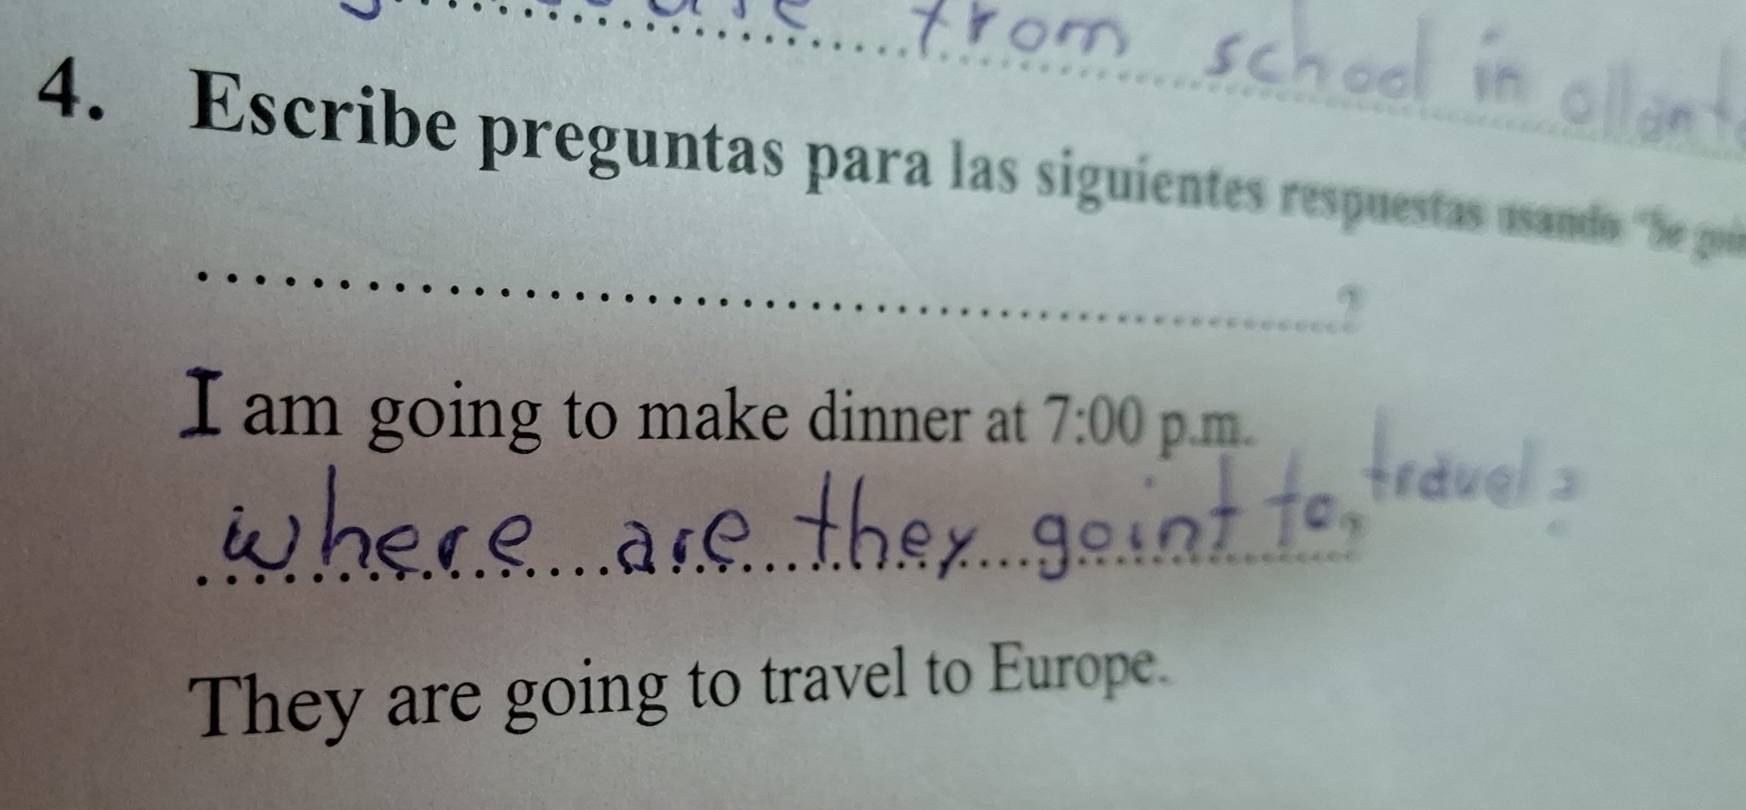 from school in
4. Escribe preguntas para las siguientes respuestas usando "be
........................................?
I am going to make dinner at 7:00 p.m.
where are they goint to travel?
They are going to travel to Europe.